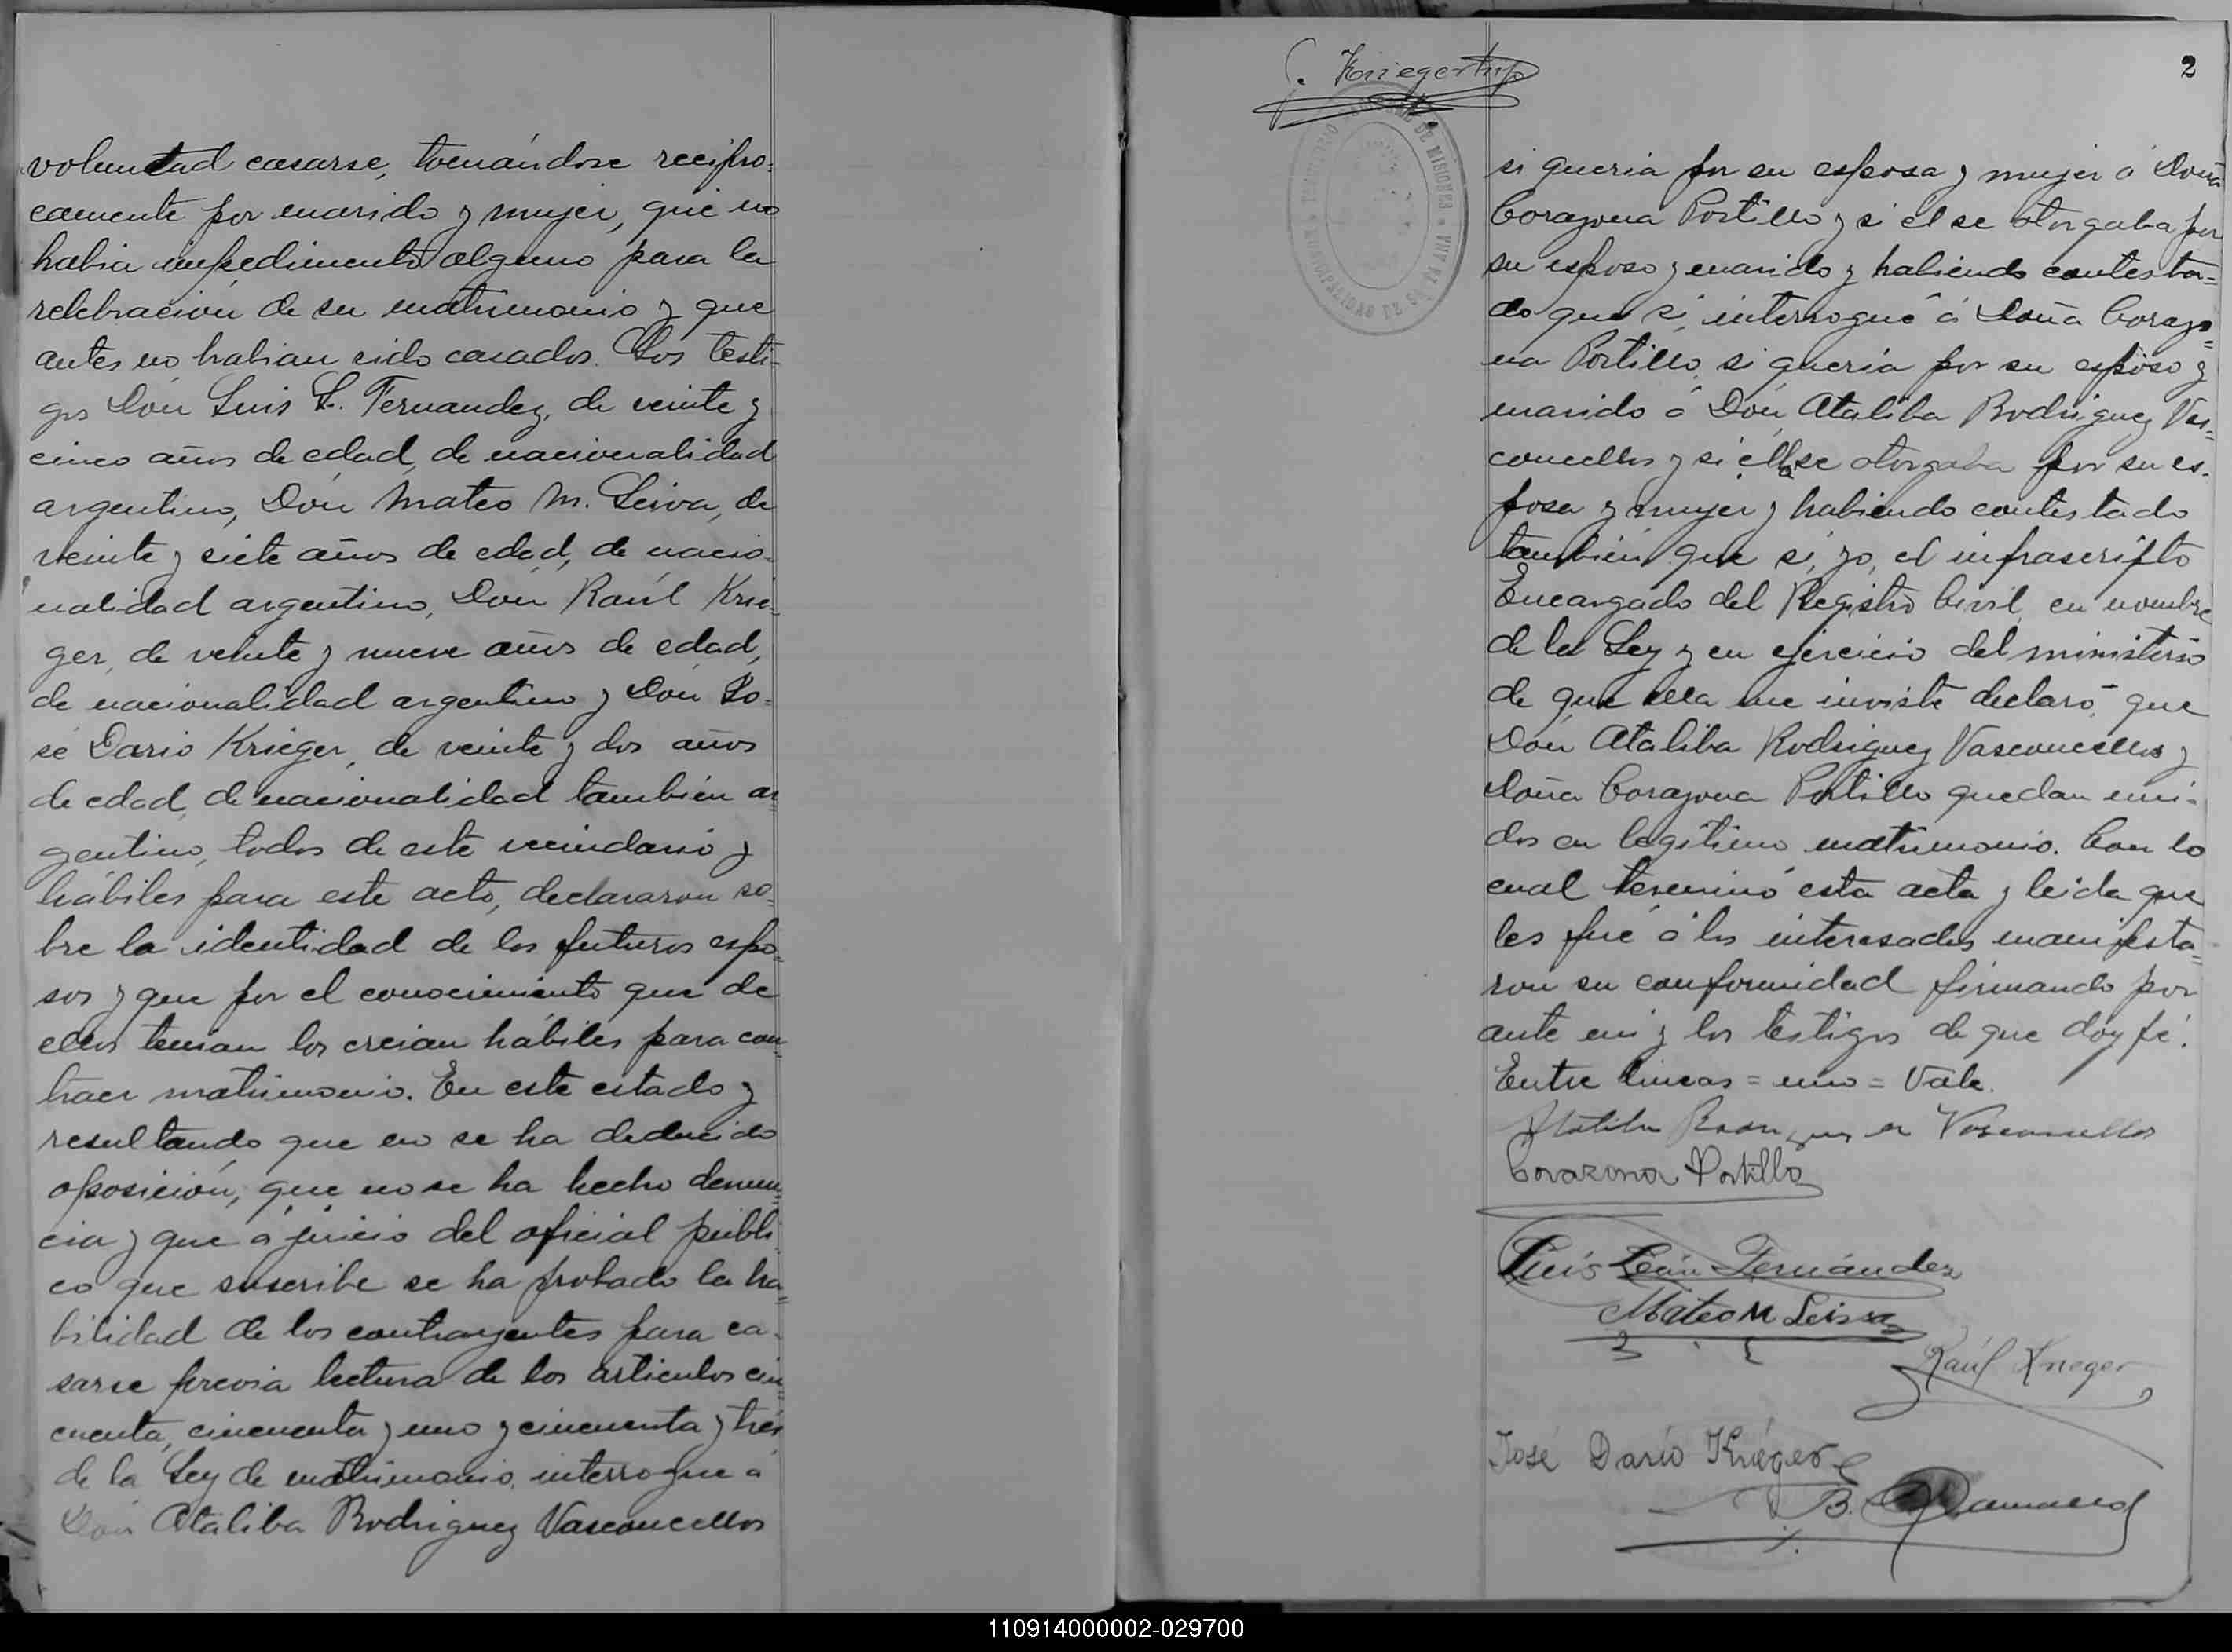 voluntad casarse, tomándose recípro-
camente por marido y mujer, que no
habia impedimento alguno para la
celebración de su matrimonio y que
antes no habian sido casados. Los testi-
gos Dón Luis L. Fernandez, de veinte y
cinco años de edad, de nacionalidad
argentino, Dón Mateo M. Leiva, de
veinte y siete años de edad, de nacio-
nalidad argentino, Dón Raúl Krie-
ger, de veinte y nueve años de edad,
de nacionalidad argentino y Dón Jo-
sé Dario Krieger, de veinte y dos años
de edad, de nacionalidad también ar-
gentino, todos de este vecindario y
hábiles para este acto, declararon so-
bre la identidad de los futuros espo-
sos y que por el conocimiento que de
ellos tenian los creian hábiles para con-
traer matrimonio. En este estado y
resultando que no se ha deducido
oposición, que no se ha hecho denun-
cia y que á juicio del oficial públi-
co que suscribe se ha probado la ha-
bilidad de los contrayentes para ca-
sarse previa lectura de los artículos cin-
cuenta, cincuenta y uno y cincuenta y tres
de la Ley de matrimonio, interrogue á
Dón Ataliba Rodriguez Vasconcellos
Krieger
2
si queria por su esposa y mujer á Doña
Corazona Portillo y si él se otorgaba por
su esposo y marido y habiendo contesta-
do que sí, interrogué á Doña Corazo-
na Portillo, si queria por su esposo y
marido á Dón Ataliba Rodriguez Vas-
concellos y si ella se otorgaba por su es-
posa y mujer y habiendo contestado
también que sí, yo, el infrascripto
Encargado del Registro Civil, en nombre
de la Ley y en ejercicio del ministerio
de que ella me inviste declaró que
Dón Ataliba Rodriguez Vasconcellos y
Doña Corazona Portillo quedan uni-
dos en legítimo matrimonio. Con lo
cual terminó esta acta y leida que
les fué á los interesados manifesta-
ron su conformidad firmando por
ante mi y los testigos de que doy fé.
Entre lineas = uno = Vale.
Ataliba Rodriguez Vasconcellos
Corazona Portillo
Luis León Fernández
Mateo M Leiva
Raúl Krieger
José Darío Kriéger
B.
110914000002-029700